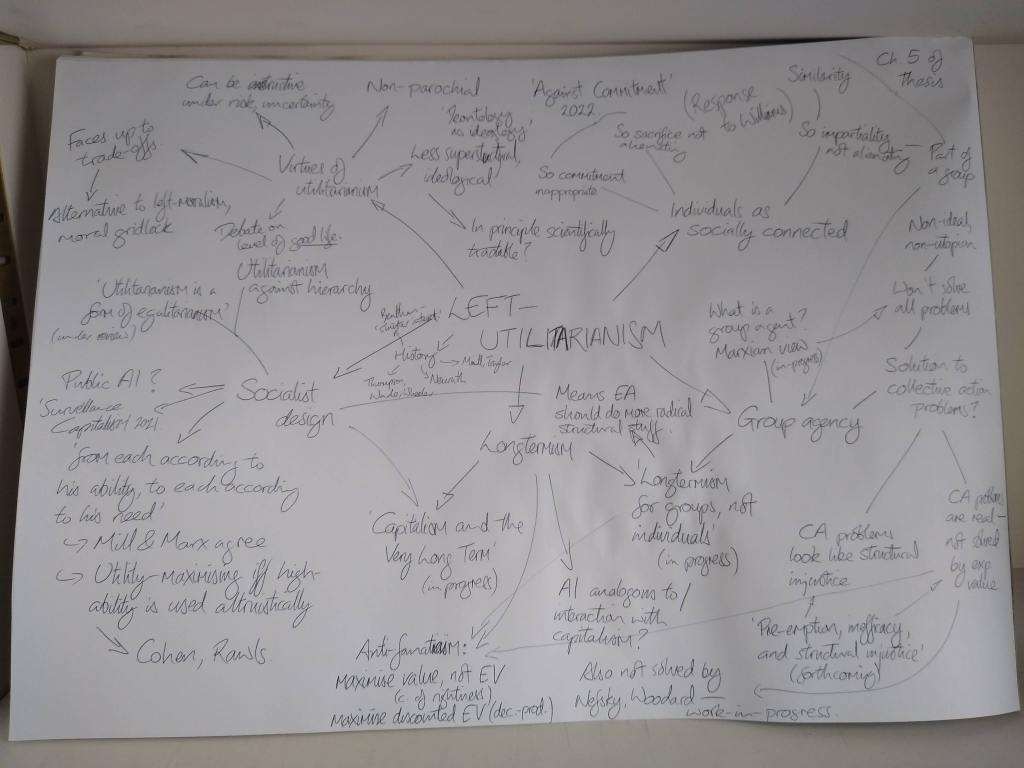 Can be instructive
under risk, uncertainty
Non-parochial
'Against Commitment'
2022
(Response
to Williams)
Similarity
Ch 5 of
thesis
Faces up to
trade-offs.
Virtues of
utilitarianism
'Deontology
as ideology'
Less superstructural,
ideological
So sacrifice not
alienating
So commitment
inappropriate
So impartiality
not alienating
Part of
a group
Alternative to left-moralism,
moral gridlock
Debate on
level of good life.
In principle scientifically
tractable?
Individuals as
socially connected
Non-ideal,
non-utopian
Utilitarianism
against hierarchy
'Utilitarianism is a
form of egalitarianism'
(under review)
LEFT-
UTILITARIANISM
History
Mill, Taylor
Neurath
Thompson,
What is a
group agent?
Marxian view
(in progress)
Won't solve
all problems
Public AI?
'Surveillance
Capitalism' 2021
Socialist
design
Means EA
should do more radical
structural stuff.
Group agency
Solution to
collective action
problems?
Longtermism
'from each according to
his ability, to each according
to his need'
Mill & Marx agree
Utility-maximising iff high-
ability is used altruistically
Cohen, Rawls.
'Capitalism and the
Very Long Term'
(in progress)
'Longtermism
for groups, not
individuals'
(in progress)
CA problems
look like structural
injustice
CA problems
are real -
not solved
by exp
value
AI analogous to/
interaction with
capitalism?
'Pre-emption, inefficacy,
and structural injustice'
(forthcoming)
Anti-fanaticism:
Maximise value, not EV
(c. of rightness)
Maximise discounted EV (dec-prod.)
Also not solved by
Nefsky, Woodard -
work-in-progress.